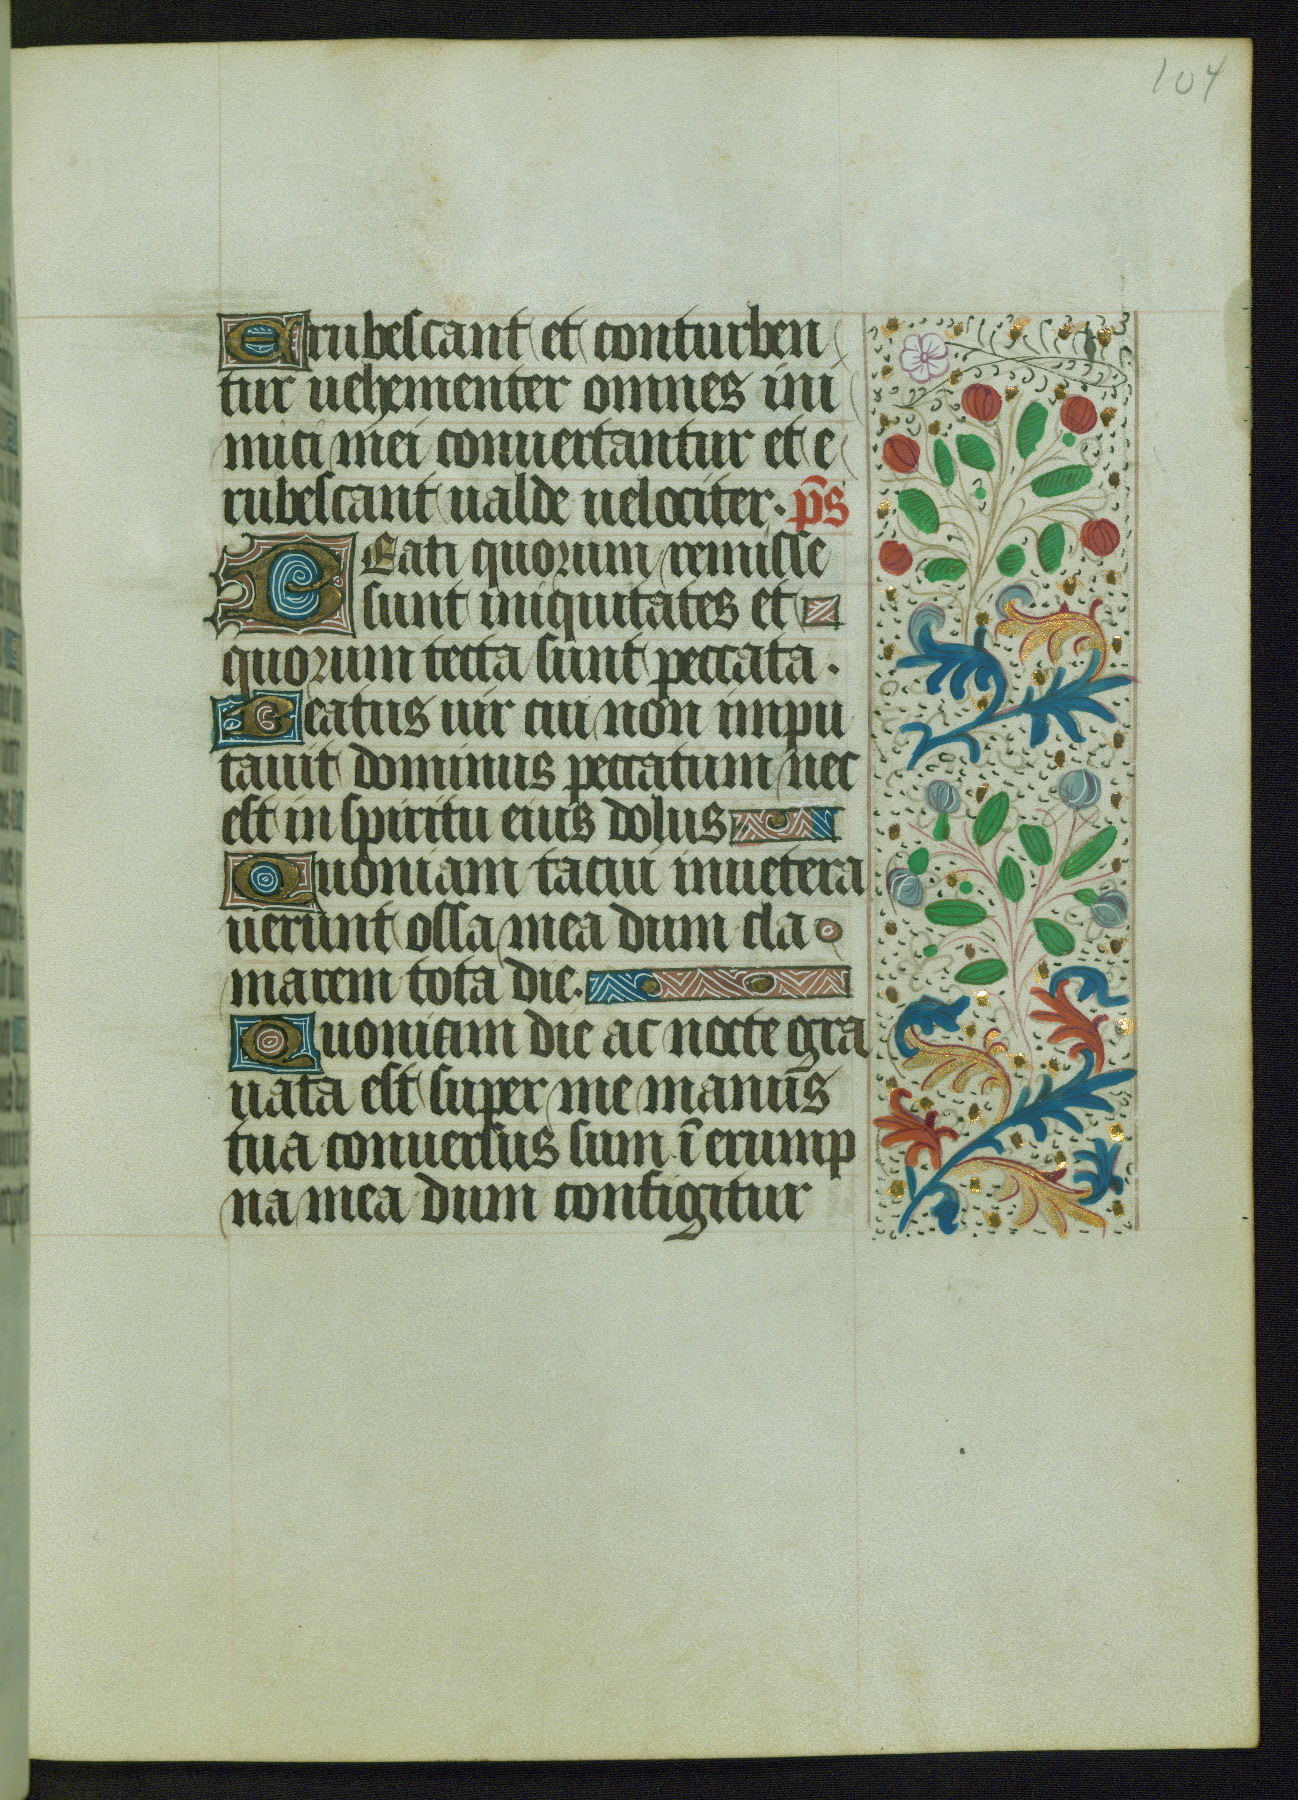 104
Erubescant et conturben
tur uehementer omnes ini
mici mei conuertantur et e
rubescant ualde uelociter. p̄s
Beati quorum remisse
sunt iniquitates et
quorum tecta sunt peccata.
Beatus uir cui non impu
tauit dominus peccatum nec
est in spiritu eius dolus
Quoniam tacui inuetera
uerunt ossa mea dum cla
marem tota die.
Quoniam die ac nocte gra
uata est super me manus
tua conuersus sum ī erump
na mea dum configitur